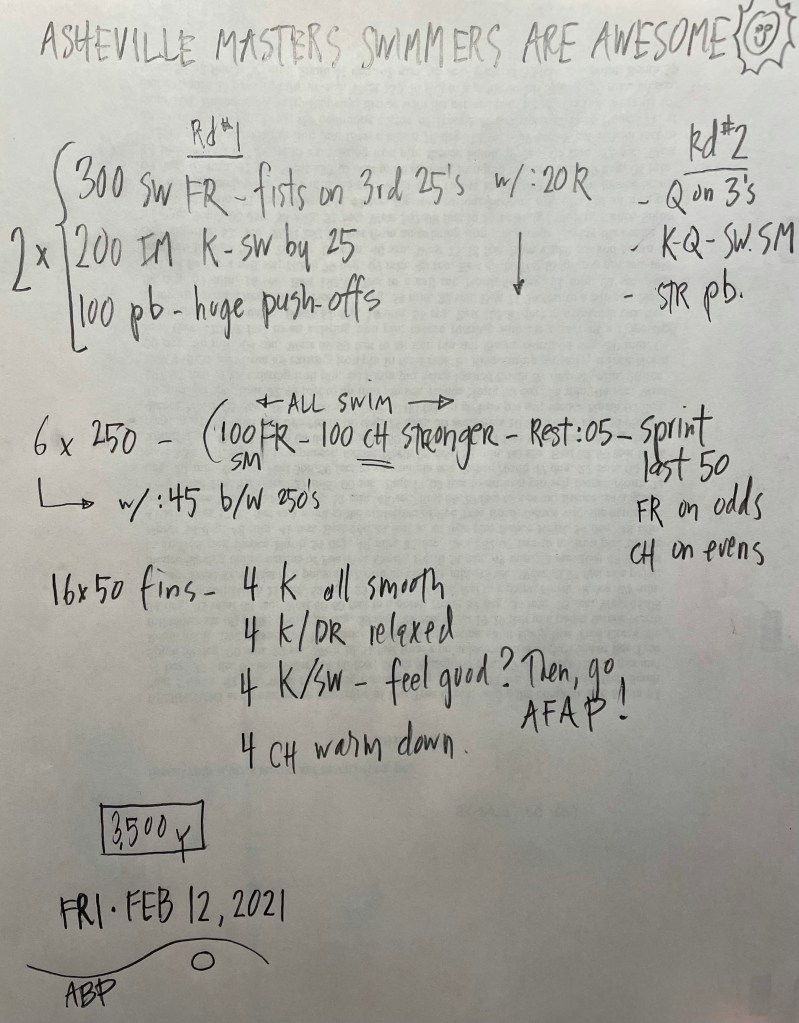 ASHEVILLE MASTERS SWIMMERS ARE AWESOME
Rd #1
Rd #2
2x
300 SW FR - fists on 3rd 25's w/ :20 R
- Q on 3's
200 IM K-SW by 25
- K-Q-SW. SM
100 pb - huge push-offs
- STR pb.
← ALL SWIM →
6 x 250 - (100 FR - 100 CH Stronger - Rest :05 - Sprint
SM
last 50
w/ :45 b/w 250's
FR on odds
CH on evens
16x50 fins - 4 K all smooth
4 K/DR relaxed
4 K/SW - feel good? Then, go
AFAP!
4 CH warm down.
3,500 Y
FRI. FEB 12, 2021
ABP